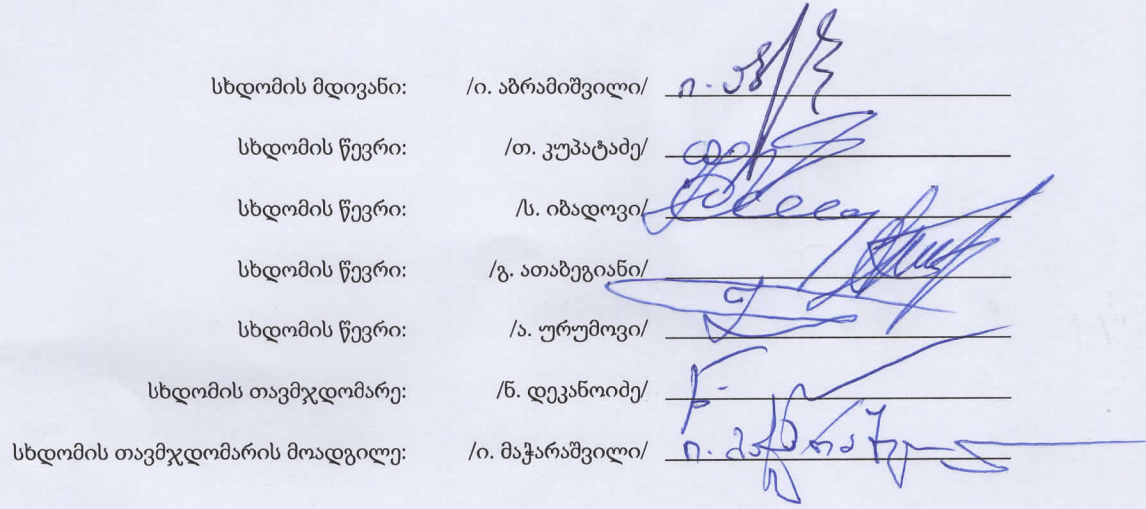 სხდომის მდივანი: /ი. აბრამიშვილი/
სხდომის წევრი: /თ. კუპატაძე/
სხდომის წევრი: /ს. იბადოვი/
სხდომის წევრი: /გ. ათაბეგიანი/
სხდომის წევრი: /ა. ურუმოვი/
სხდომის თავმჯდომარე: /ნ. დეკანოიძე/
სხდომის თავმჯდომარის მოადგილე: /ი. მაჭარაშვილი/